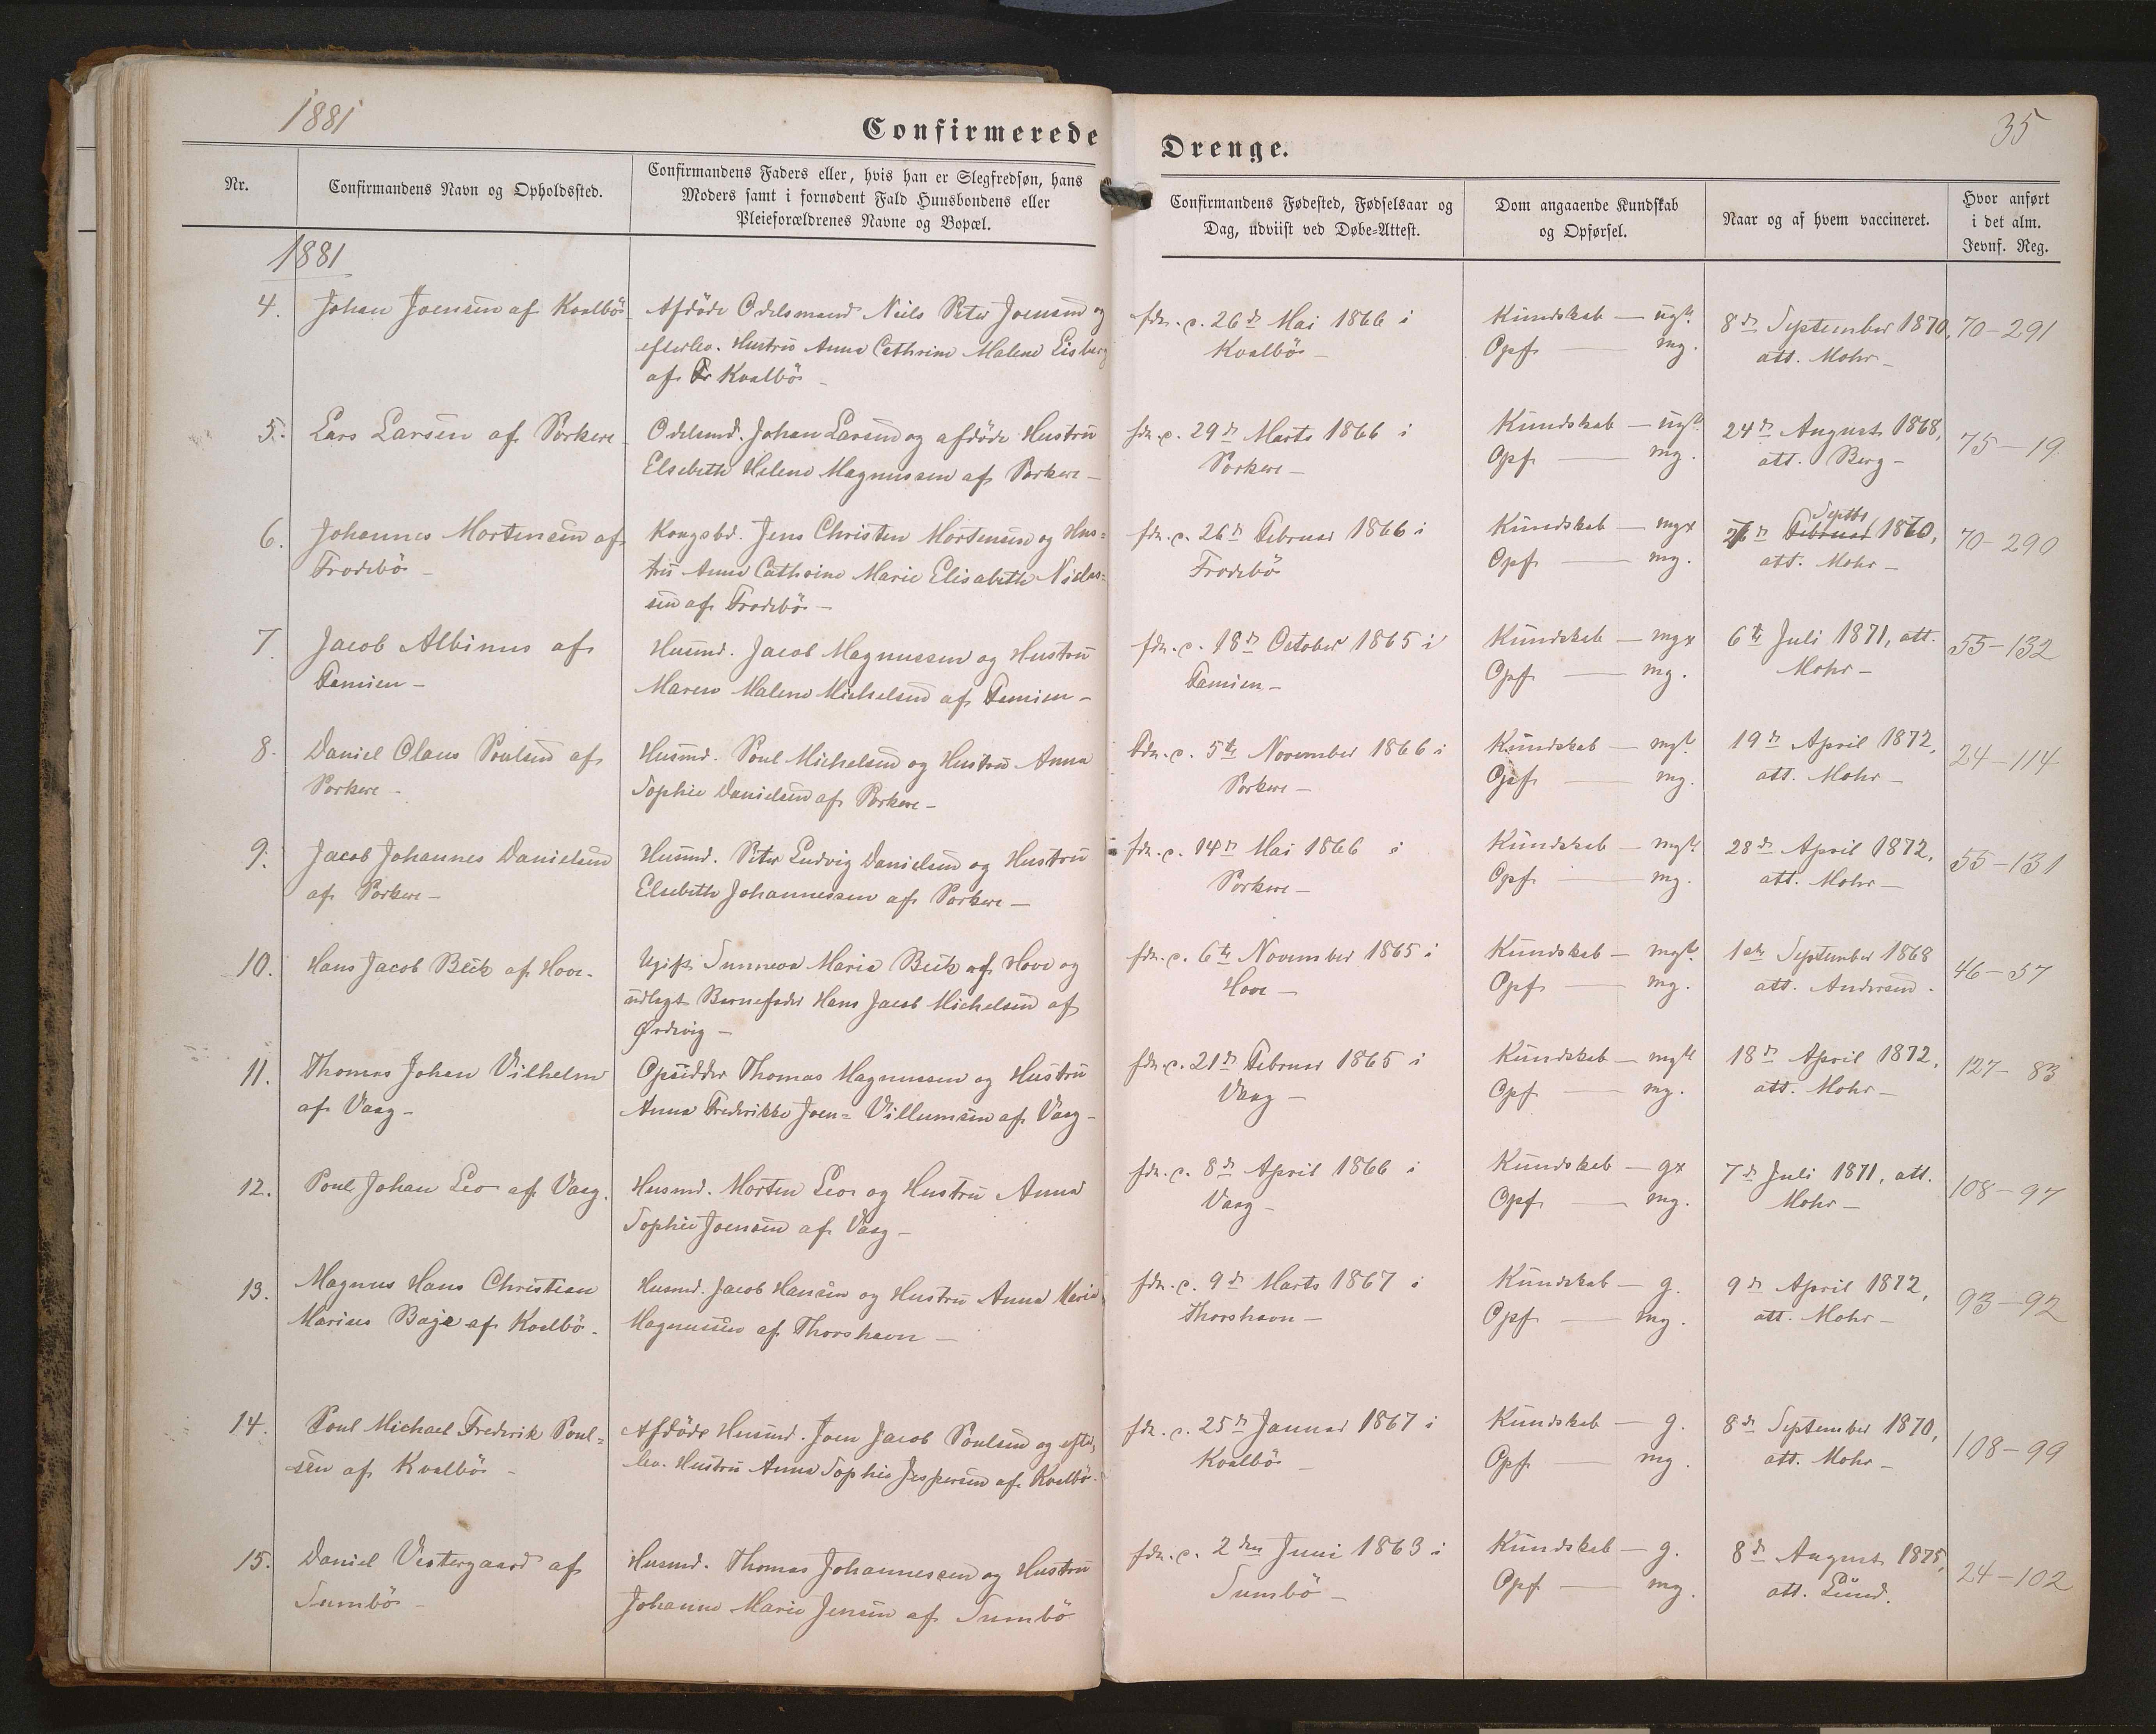 1881
35
Confirmerede Drenge.
Nr.
Confirmandens Navn og Opholdssted.
Confirmandens Faders eller, hvis han er Slegfredsøn, hans
Moders samt i fornødent Fald Huusbondens eller
Pleieforældrenes Navne og Bopæl.
Confirmandens Fødested, Fødselsaar og
Dag, udviist ved Døbe-Attest.
Dom angaaende Kundskab
og Opførsel.
Naar og af hvem vaccineret.
Hvor anført
i det alm.
Jevnf. Reg.
1881
4. Johan Joensen af Kvalbö
Afdöde Odelsmand Niels Peter Joensen og
efterlev. Hustru Anna Cathrine Malene Eisberg
af Kvalbö
fdn. c. 26d Mai 1866 i
Kvalbö
Kundskab — ugt.
Opf — mg.
8d September 1870,
att. Mohr
70-291
5. Lars Larsen af Porkere
Odelsmd. Johan Larsen og afdöde Hustru
Elsebeth Helene Magnussen af Porkere
fdn. c. 29d Marts 1866 i
Porkere
Kundskab — ugt.
Opf — mg.
24d August 1868,
att. Berg
75-19
6. Johannes Mortensen af
Frodebö
Kongsbd. Jens Christen Mortensen og Hus=
tru Anna Cathrine Marie Elisabeth Niclas=
sen af Frodebö
fdn. c. 26d Februar 1866 i
Frodebö
Kundskab — mgx
Opf — mg.
Septbr
Februar 1870,
att. Mohr
70-290
7. Jacob Albinus af
Famien
Husmd. Jacob Magnussen og Hustru
Maren Malene Michelsen af Famien
fdn. c. 18d October 1865 i
Famien
Kundskab — mgx
Opf — mg.
6te Juli 1871, att.
Mohr
55-132
8. Daniel Olaus Poulsen af
Porkere
Husmd. Poul Michelsen og Hustru Anna
Sophie Danielsen af Porkere
Fdn. c. 5te November 1866 i
Porkere
Kundskab — mgt.
Opf — mg.
19d April 1872,
att. Mohr
24-114
9. Jacob Johannes Danielsen
af Porkere
Husmd. Peter Ludvig Danielsen og Hustru
Elsebeth Johannessen af Porkere
fdn. c. 14d Mai 1866 i
Porkere
Kundskab — mgt.
Opf — mg.
28d April 1872,
att. Mohr
55-131
10. Hans Jacob Beck af Hove
Ugift Sunneva Maria Beck af Hove og
udlagt Barnefader Hans Jacob Michelsen af
Ørdevig
fdn. c. 6te November 1865 i
Hove
Kundskab — mgt.
Opf — mg.
1ste September 1868
att. Andersen
46-57
11. Thomas Johan Vilhelm
af Vaag
Opsidder Thomas Magnussen og Hustru
Anna Frederikke Joen= Villumsen af Vaag
fdn. c. 21d Februar 1865 i
Vaag
Kundskab — mgt
Opf — mg.
18d April 1872,
att. Mohr
127-83
12. Poul Johan Leo af Vaag.
Husmd. Morten Leo og Hustru Anna
Sophie Joensen af Vaag
fdn. c. 8d April 1866 i
Vaag
Kundskab — gx
Opf — mg.
7d Juli 1871, att.
Mohr
108-97
13. Magnus Hans Christian
Marius Baje af Kvalbö.
Husmd. Jacob Hansen og Hustru Anna Maria
Magnussen af Thorshavn
fdn. c. 9d Marts 1867 i
Thorshavn
Kundskab — g.
Opf — mg.
9d April 1872,
att. Mohr
93-92
14. Poul Michael Frederik Poul=
sen af Kvalbö
Afdöde Husmd. Joen Jacob Poulsen og efter
lev. Hustru Anna Sophie Jespersen af Kvalbö.
fdn. c. 25d Januar 1867 i
Kvalbö
Kundskab — g.
Opf — mg.
8d September 1870,
att. Mohr
108-99
15. Daniel Vestergaard af
Sumbö
Husmd. Thomas Johannessen og Hustru
Johanne Marie Jensen af Sumbö
fdn. c. 2den Juni 1863 i
Sumbö
Kundskab — g.
Opf — mg.
8d August 1875,
att. Lund.
24-102